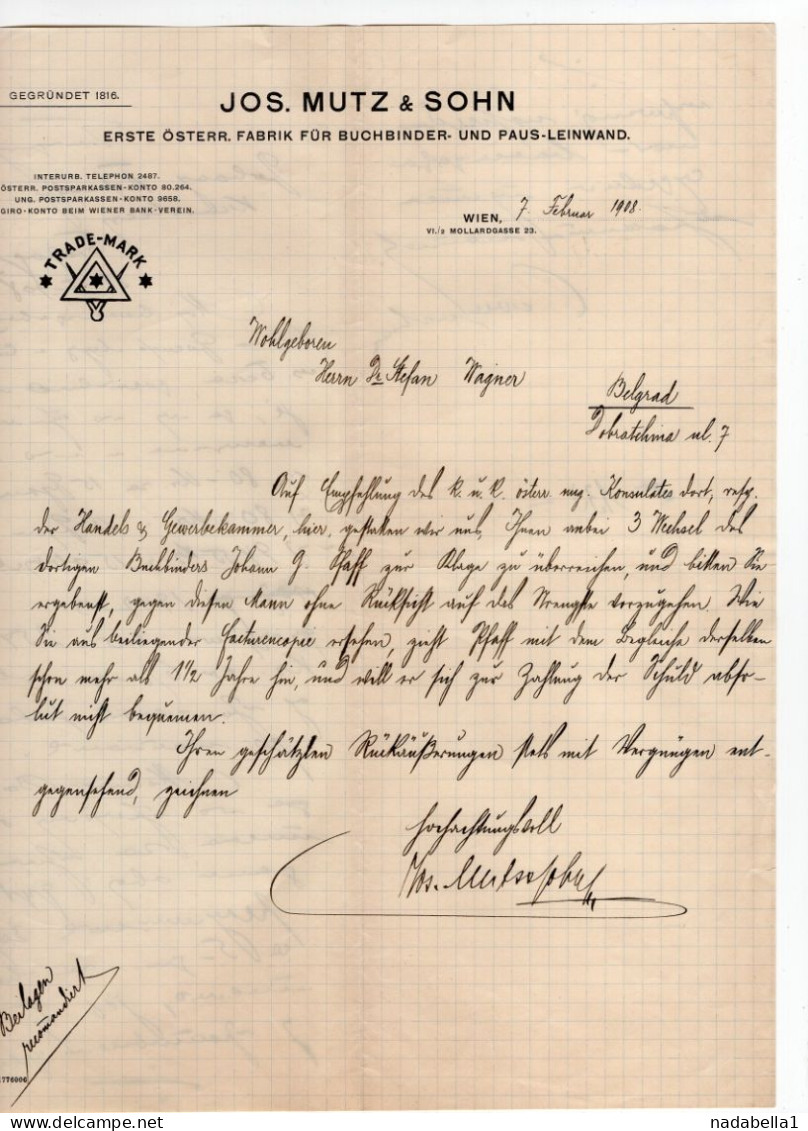 GEGRÜNDET 1816.
JOS. MUTZ & SOHN
ERSTE ÖSTERR. FABRIK FÜR BUCHBINDER- UND PAUS-LEINWAND.
INTERURB. TELEPHON 2487.
ÖSTERR. POSTSPARKASSEN-KONTO 80.264.
UNG. POSTSPARKASSEN-KONTO 9658.
GIRO-KONTO BEIM WIENER BANK-VEREIN.
WIEN, 7. Februar 1908.
VI./2 MOLLARDGASSE 23.
TRADE-MARK
Wohlgeboren
Herrn Dr Stefan Wagner
Belgrad
ul. 7
Auf Empfehlung des k. u. k. österr. ung. Konsulates dort, resp.
der Handels & Gewerbekammer, hier, gestatten wir uns, Ihnen anbei 3 Wechsel des
dortigen Buchbinders Johann G. Pfaff zur Klage zu überreichen, und bitten Sie
ergebenst, gegen diesen Mann ohne Rücksicht auf das Strengste vorzugehen. Wie
Sie aus beiliegender Facturencopie ersehen, zieht Pfaff mit dem derselben
schon mehr als 1½ Jahre hin, und will er sich zur Zahlung der Schuld abso-
lut nicht bequemen.
Ihren geschätzten Rückäußerungen stets mit Vergnügen ent-
gegensehend, zeichnen
hochachtungsvoll
Jos. Mutz & Sohn
Beilagen
recommandiert
1776006
nadabella1